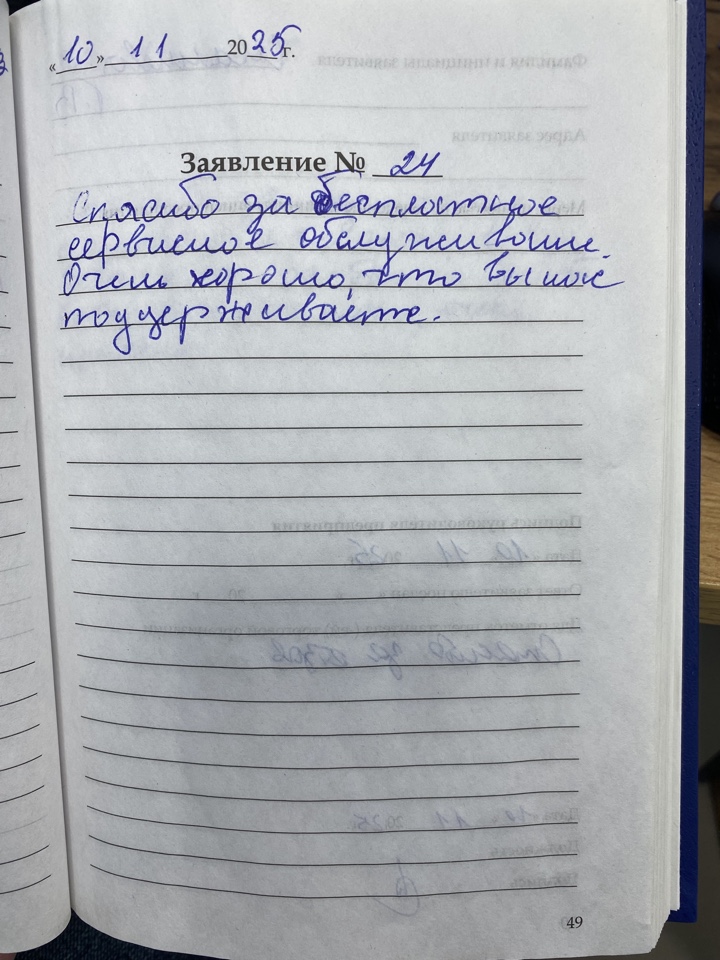 «10» 11 2025г.
Заявление № 24
Спасибо за бесплатное
сервисное обслуживание.
Очень хорошо, что вы нас
поддерживаете.
49